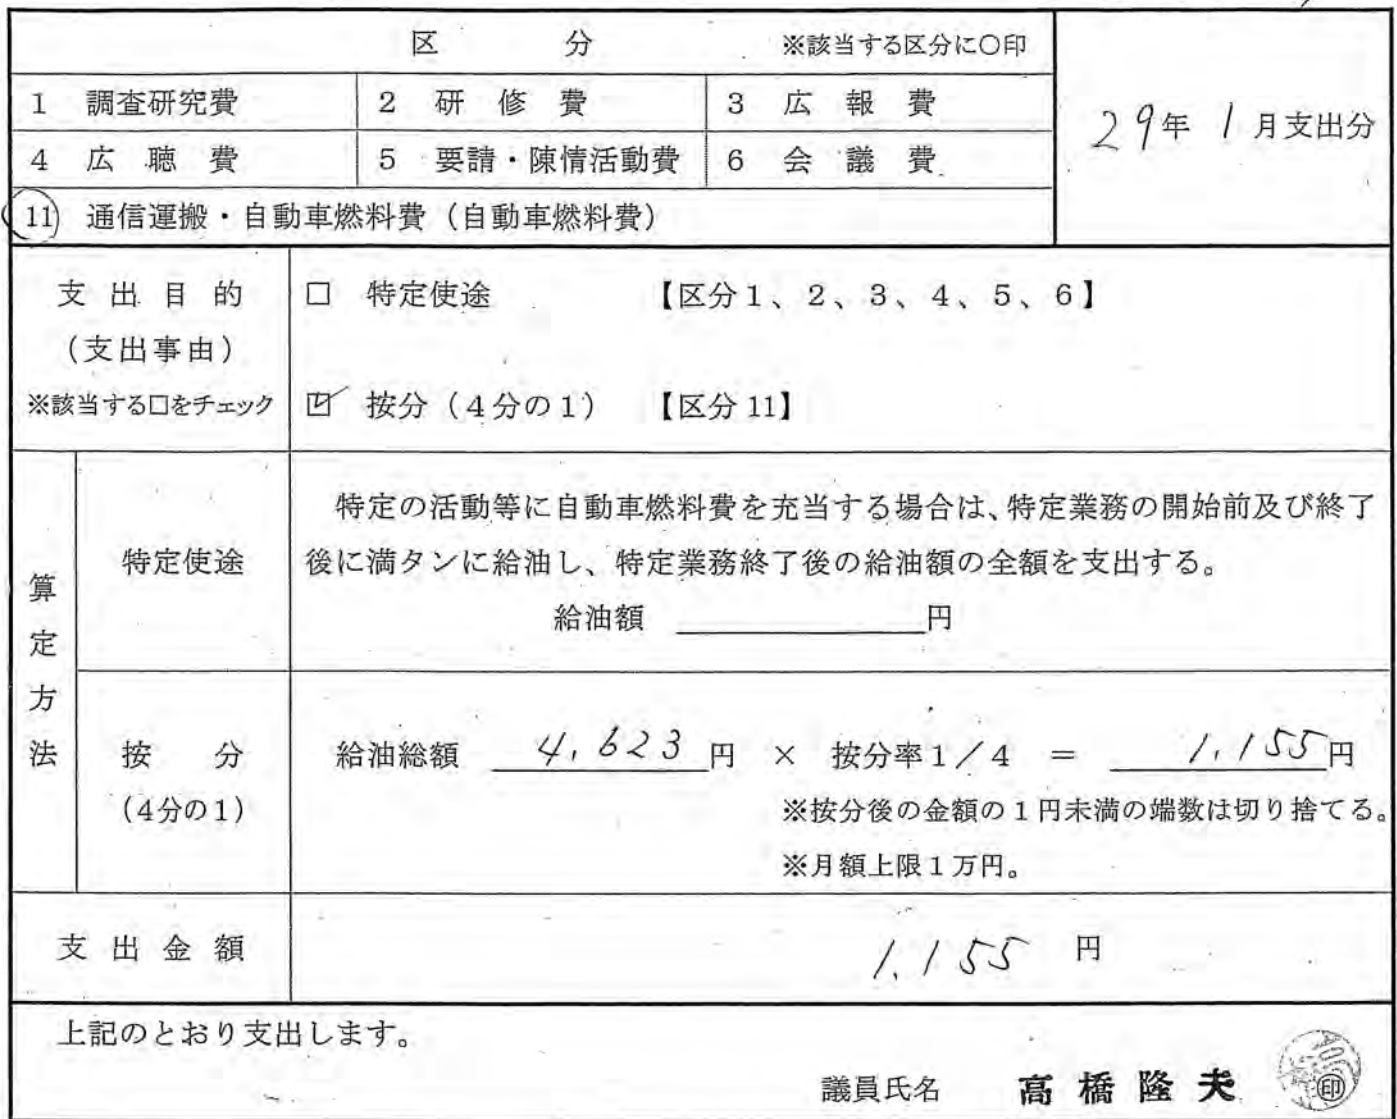 区 分 ※該当する区分に○印
29年 1月支出分
1 調査研究費 2 研修費 3 広報費
4 広聴費 5 要請・陳情活動費 6 会議費
11 通信運搬・自動車燃料費（自動車燃料費）
支出目的
（支出事由）
※該当する□をチェック
□ 特定使途 【区分1、2、3、4、5、6】
☑ 按分（4分の1） 【区分11】
算定方法
特定使途
特定の活動等に自動車燃料費を充当する場合は、特定業務の開始前及び終了
後に満タンに給油し、特定業務終了後の給油額の全額を支出する。
給油額 円
按分
（4分の1）
給油総額 4,623円 × 按分率1／4 ＝ 1,155円
※按分後の金額の1円未満の端数は切り捨てる。
※月額上限1万円。
支出金額 1,155 円
上記のとおり支出します。
議員氏名 高橋隆夫 印